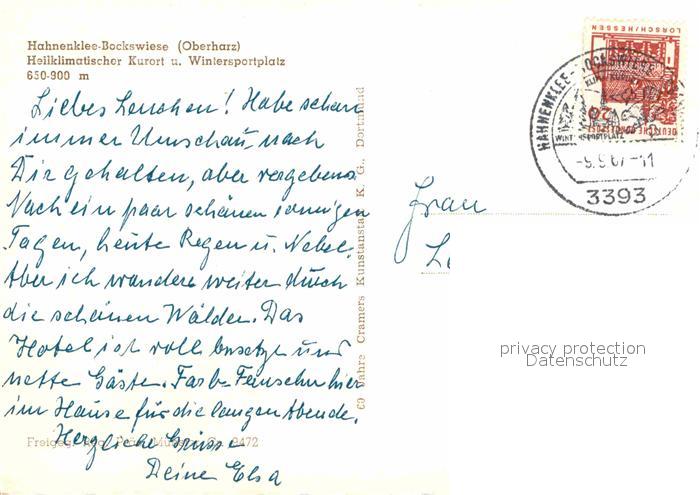 Hahnenklee-Bockswiese (Oberharz)
Heilklimatischer Kurort u. Wintersportplatz
650-900 m
Liebes Lenchen! Habe schon
immer Umschau nach
Dir gehalten, aber vergebens.
Nach ein paar schönen sonnigen
Tagen, heute Regen u. Nebel.
Aber ich wandere weiter durch
die schönen Wälder. Das
Hotel ist voll besetzt und
nette Gäste. Farb-Fernsehn hier
im Hause für die langen Abende.
Herzliche Grüsse
Deine Elsa
Freigeg.
2472
60 Jahre Cramers Kunstanstalt K. G., Dortmund
Frau
L.
LORSCH/HESSEN
DEUTSCHE BUNDESPOST
20
HAHNENKLEE-BOCKSWIESE
WINTERSPORTPLATZ
3393
privacy protection
Datenschutz